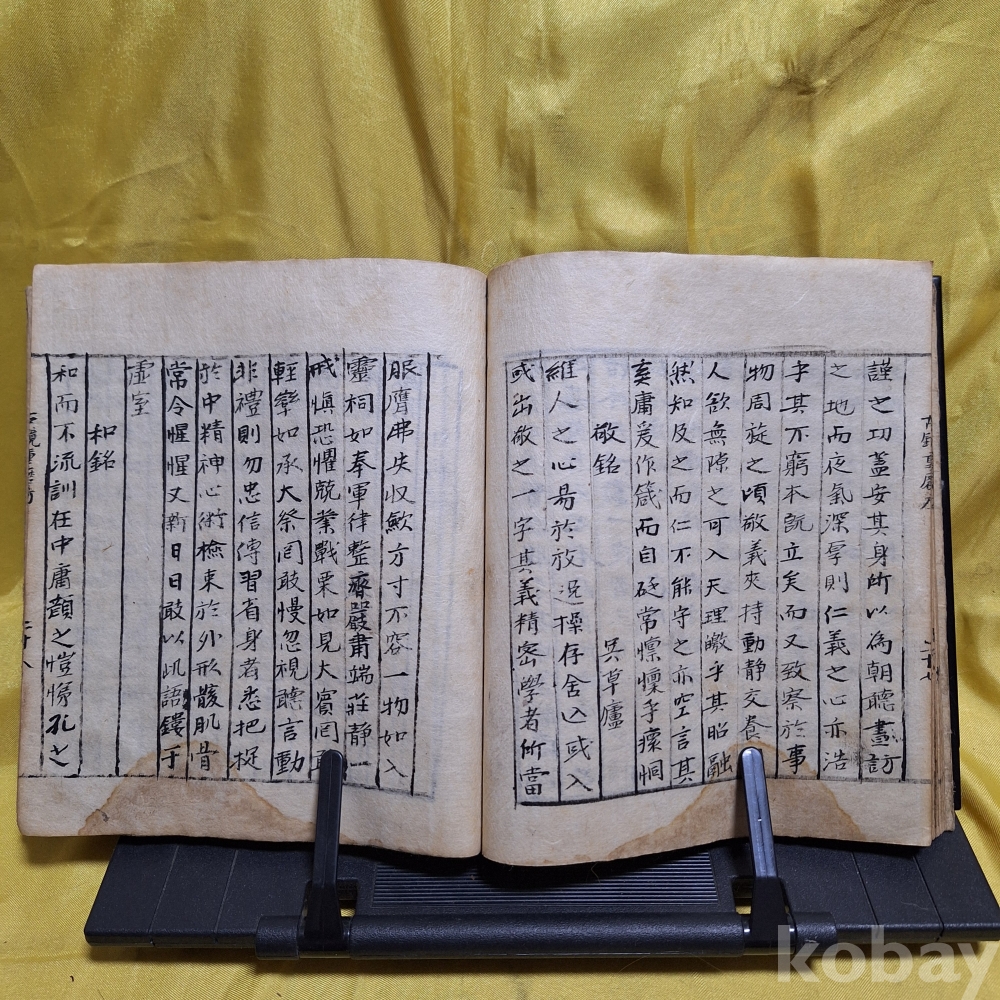 謹之功盖安其身所以為朝聽晝訪
之地而夜氣深厚則仁義之心亦浩
乎其不窮本旣立矣而又致察於事
物周旋之頃敬義夾持動靜交養
人欲無隙之可入天理皦乎其昭融
然知及之而仁不能守之亦空言其
奚庸爰作箴而自砭常懍懍乎瘝恫
敬銘
吳草廬
維人之心易於放逸操存舍亡或入
或出敬之一字其義精密學者所當
服膺弗失收歛方寸不容一物如入
靈祠如奉軍律整齊嚴肅端莊靜一
戒愼恐懼兢業戰栗如見大賓罔敢
輕率如承大祭罔敢慢忽視聽言動
非禮則勿忠信傳習省身者悉把捉
於中精神心術檢束於外形骸肌骨
常令惺惺又新日日敢以此語鏤于
虛室
和銘
和而不流訓在中庸顔之愷悌孔之
二十八
kobay